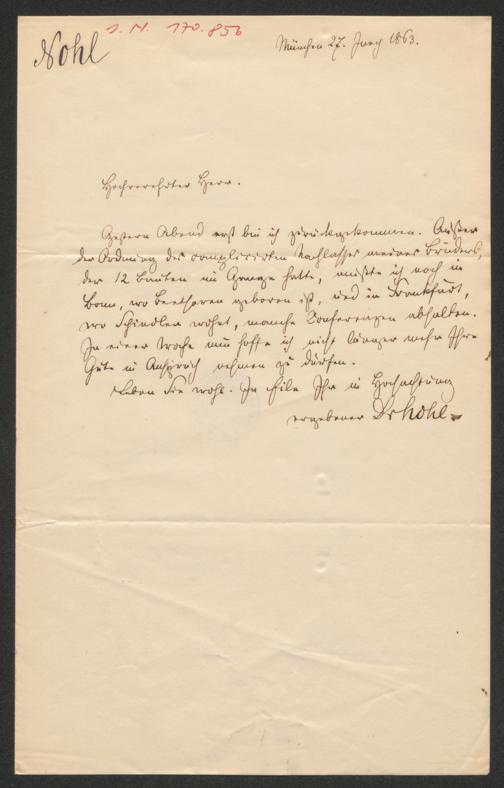 J. N. 170.856
Nohl
München 27. Juny 1863.
Hochverehrter Herr.
Gestern Abend erst bin ich zurückgekommen. Außer
der Ordnung des complicirten Nachlasses meines Bruders,
der 12 Bauten im Gange hatte, mußte ich noch in
Bonn, wo Beethoven geboren ist, und in Frankfurt,
wo Schindler wohnt, manche Conferenzen abhalten.
In einer Woche nun hoffe ich nicht länger mehr Ihre
Güte in Anspruch nehmen zu dürfen.
Leben Sie wohl. In Eile Ihr in Hochachtung
ergebener Dr Nohl.